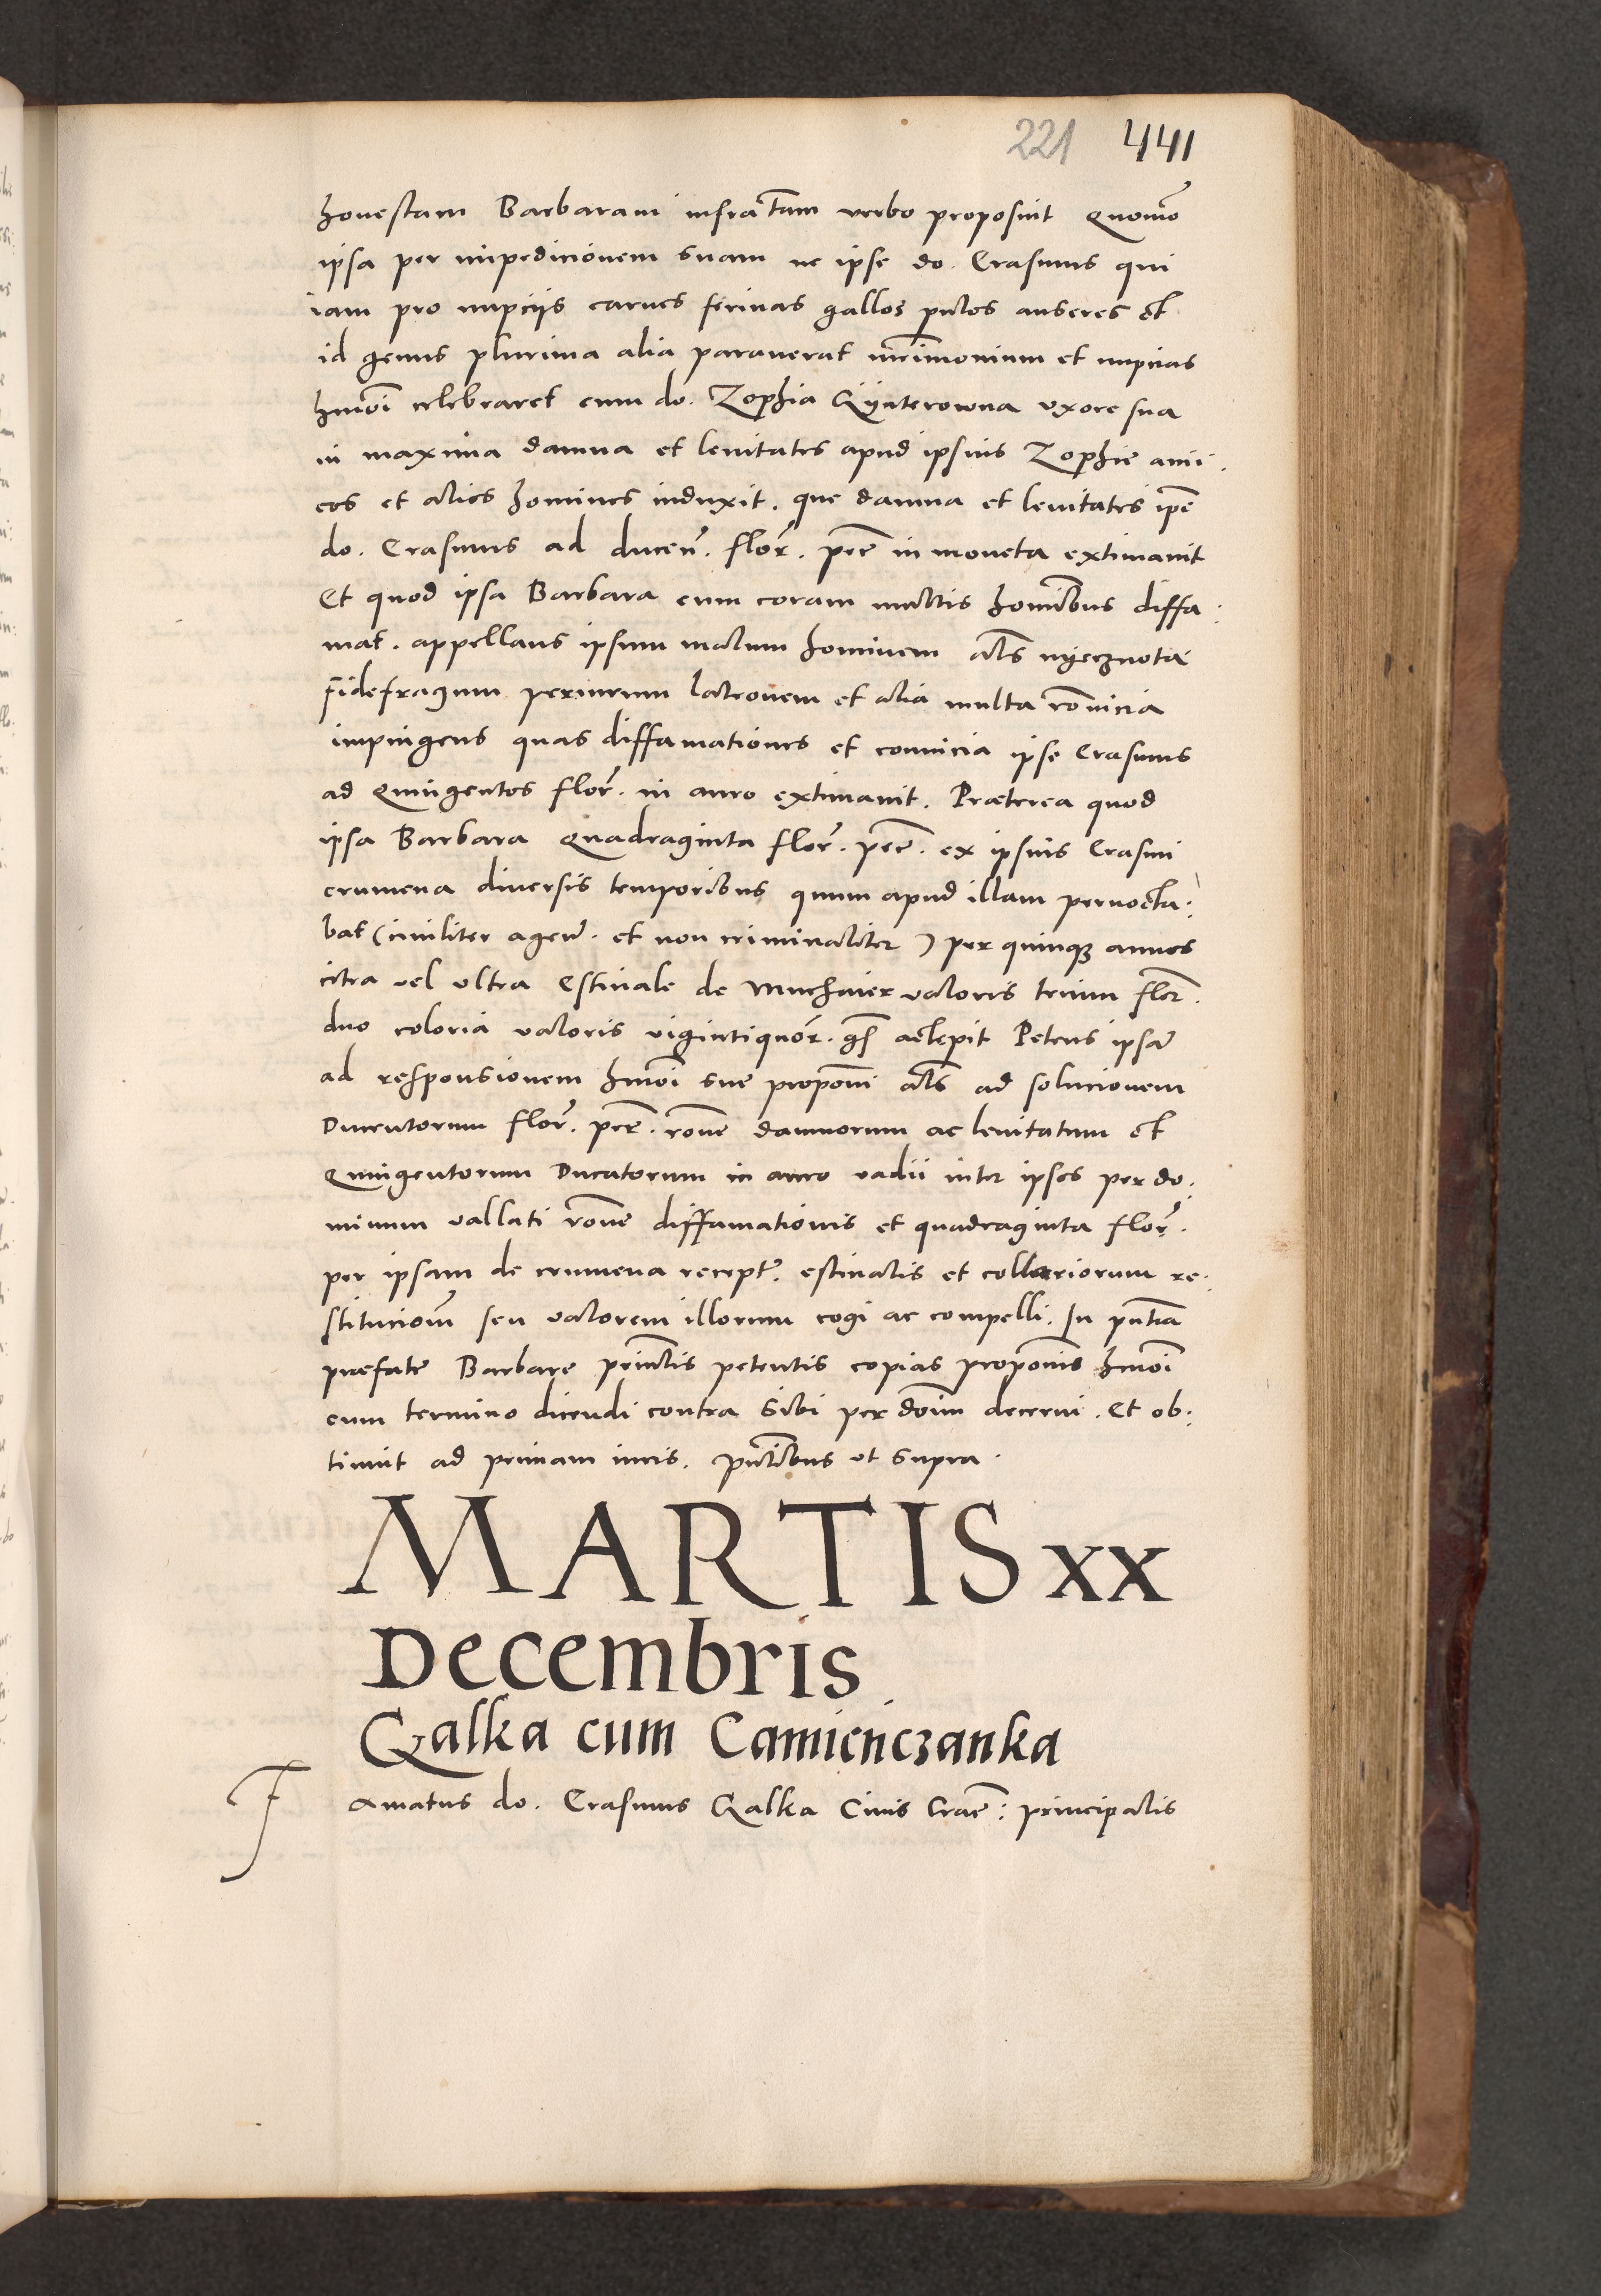 221 441
honestam Barbaram infractam verbo proposuit Quomo
ipsa per impedicionem suam ne ipse do. Erasmus qui
iam pro nupciis carnes ferinas gallos pulos anseres et
id genus plurima alia paraverat mrimonium et nupcias
hmoi celebraret cum do. Zophia Gynterowna uxore sua
in maxima damna et levitates apud ipsius Zophie ami:
cos et alios homines induxit. que damna et levitates ipe
do. Erasmus ad ducen. flor. pcce in moneta extimavit
Et quod ipsa Barbara eum coram multis hominibus diffa:
mat. appellans ipsum malum hominem als nyecznota
fidefragum periurum latronem et alia multa convicia
impingens quas diffamationes et convicia ipse Erasmus
ad Quingentos flor. in auro extimavit. Præterea quod
ipsa Barbara Quadraginta flor. pcce. ex ipsius Erasmi
crumena diversis temporibus quum apud illam pernocta:
bat (civiliter agen. et non criminaliter) per quinque annos
citra vel ultra Estivale de Muchaier valoris trium flor.
duo coloria valoris vigintiquor. gs accepit Petens ipsam
ad responsionem hmoi sue proponi als ad solucionem
Ducentorum flor. pcce. rone damnorum ac levitatum et
Quingentorum Ducatorum in auro vadii inter ipsos per do:
minum vallati rone diffamationis et quadraginta flor.
per ipsam de crumena recept. estivalis et collariorum re:
stitucionem seu valorem illorum cogi ac compelli. In pntia
præfate Barbare princtis petentis copias proponis hmoi
cum termino dicendi contra sibi per dnm decerni. Et ob:
tinuit ad primam iuris. pntibus ut supra.
MARTIS XX
Decembris
Galka cum Camienczanka
Famatus do. Erasmus Galka Civis Crac: principalis